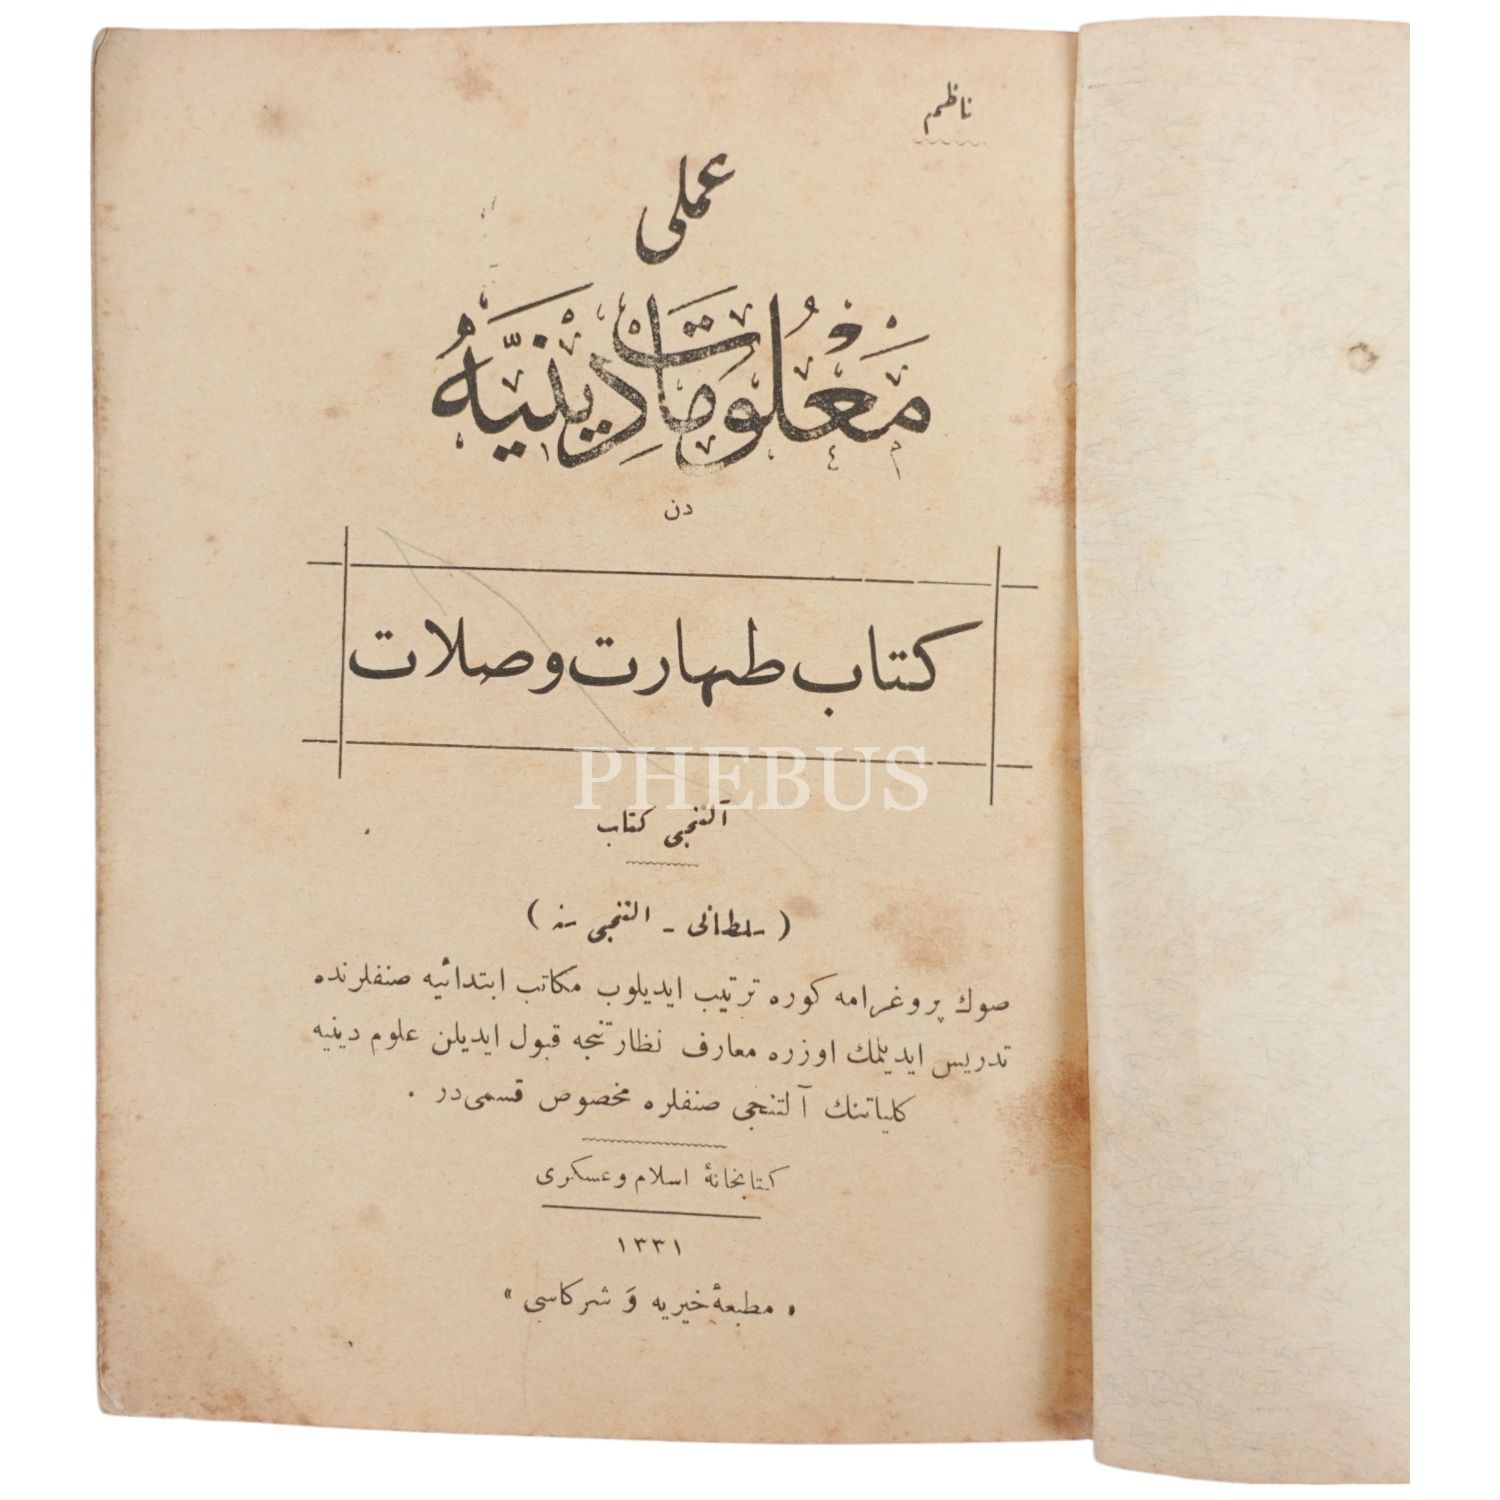 ناظم
عملی
مَعْلُومَاتْ دِينِيَّهُ
دن
كتاب طهارت وصلات
PHEBUS
آلتنجی كتاب
( سلطانی - التنجی سنه )
صوك پروغرامه كوره ترتيب ايديلوب مكاتب ابتدائيه صنفلرنده
تدريس ايديلمك اوزره معارف نظارتنجه قبول ايديلن علوم دينيه
كلياتنك آلتنجی صنفلره مخصوص قسمی در .
كتابخانهٔ اسلام و عسكری
١٣٣١
« مطبعهٔ خيريه و شركاسی »